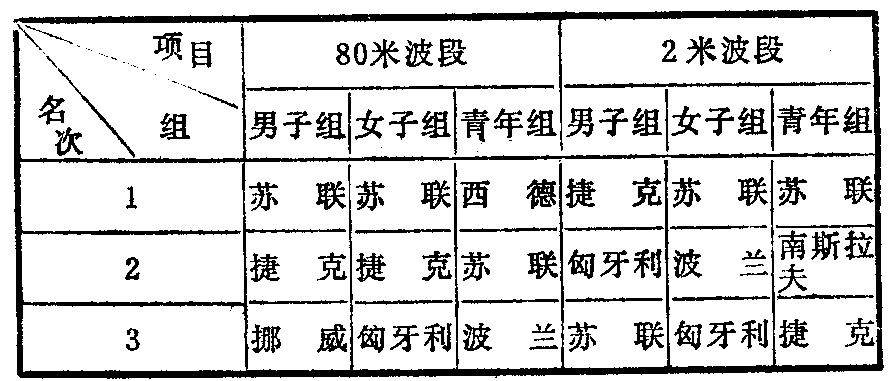 项目 80米波段 2米波段
名次 组 男子组 女子组 青年组 男子组 女子组 青年组
1 苏联 苏联 西德 捷克 苏联 苏联
2 捷克 捷克 苏联 匈牙利 波兰 南斯拉夫
3 挪威 匈牙利 波兰 苏联 匈牙利 捷克